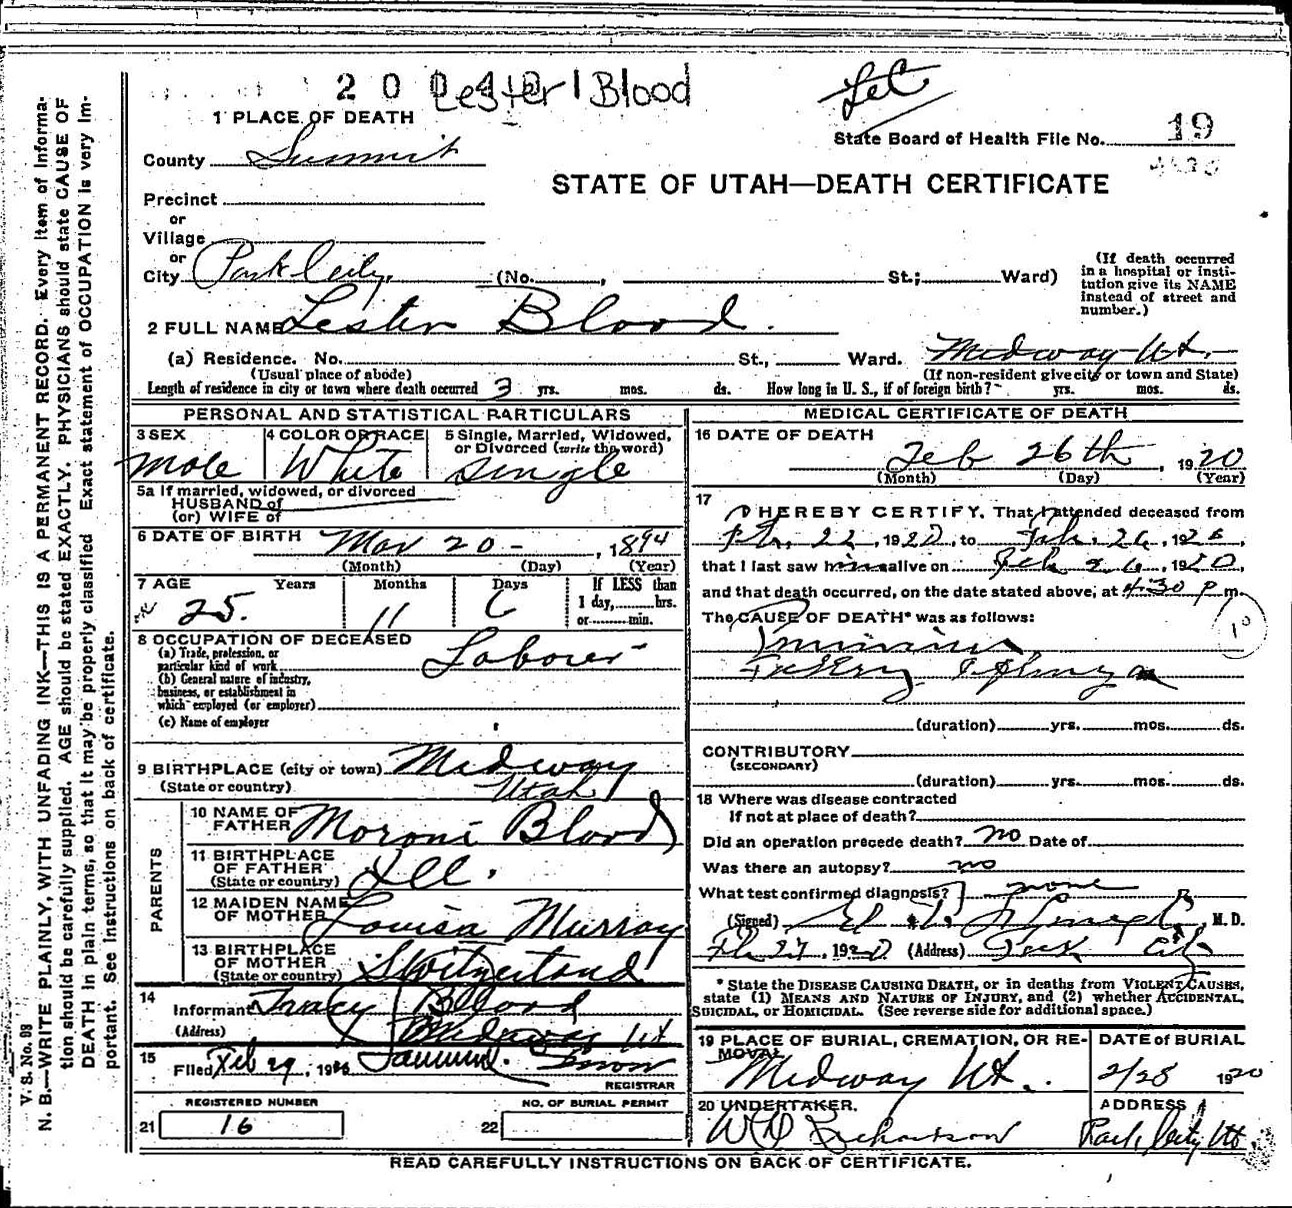 2 0 Lester Blood
1 PLACE OF DEATH
State Board of Health File No. 19
County Summit
STATE OF UTAH—DEATH CERTIFICATE
Precinct
or
Village
or
City Park City, (No. , St.; Ward)
(If death occurred
in a hospital or insti-
tution give its NAME
instead of street and
number.)
2 FULL NAME Lester Blood.
(a) Residence. No. St., Ward. Midway Ut.
(Usual place of abode) (If non-resident give city or town and State)
Length of residence in city or town where death occurred 3 yrs. mos. ds. How long in U. S., if of foreign birth? yrs. mos. ds.
PERSONAL AND STATISTICAL PARTICULARS
3 SEX
Male
4 COLOR OR RACE
White
5 Single, Married, Widowed,
or Divorced (write the word)
Single
5a If married, widowed, or divorced
HUSBAND of
(or) WIFE of
6 DATE OF BIRTH Mar 20 - , 1894
(Month) (Day) (Year)
7 AGE Years Months Days If LESS than
25. 11 6 1 day, hrs.
or min.
8 OCCUPATION OF DECEASED
(a) Trade, profession, or
particular kind of work Laborer
(b) General nature of industry,
business, or establishment in
which employed (or employer)
(c) Name of employer
9 BIRTHPLACE (city or town) Midway
(State or country) Utah
PARENTS
10 NAME OF
FATHER Moroni Blood
11 BIRTHPLACE
OF FATHER
(State or country) Ill.
12 MAIDEN NAME
OF MOTHER Louisa Murray
13 BIRTHPLACE
OF MOTHER
(State or country) Switzerland
14
Informant Tracy Blood
(Address) Midway Ut
15
Filed Feb 29, 1920
REGISTRAR
REGISTERED NUMBER
21 16
NO. OF BURIAL PERMIT
22
MEDICAL CERTIFICATE OF DEATH
16 DATE OF DEATH
Feb 26th, 1920
(Month) (Day) (Year)
17
I HEREBY CERTIFY, That I attended deceased from
Feb. 22, 1920, to Feb. 26, 1920,
that I last saw him alive on Feb 26, 1920,
and that death occurred, on the date stated above, at 4:30 p m.
The CAUSE OF DEATH* was as follows:
(duration) yrs. mos. ds.
CONTRIBUTORY
(SECONDARY)
(duration) yrs. mos. ds.
18 Where was disease contracted
If not at place of death?
Did an operation precede death? no Date of
Was there an autopsy? no
What test confirmed diagnosis? none
(Signed) M. D.
Feb 27, 1920 (Address) Park City
* State the DISEASE CAUSING DEATH, or in deaths from VIOLENT CAUSES,
state (1) MEANS AND NATURE OF INJURY, and (2) whether ACCIDENTAL,
SUICIDAL, or HOMICIDAL. (See reverse side for additional space.)
19 PLACE OF BURIAL, CREMATION, OR RE-
MOVAL
Midway Ut.
DATE of BURIAL
2/28 1920
20 UNDERTAKER.
W D Richardson
ADDRESS
Park City Ut
READ CAREFULLY INSTRUCTIONS ON BACK OF CERTIFICATE.
V. S. No. 98
N. B.—WRITE PLAINLY, WITH UNFADING INK—THIS IS A PERMANENT RECORD. Every item of informa-
tion should be carefully supplied. AGE should be stated EXACTLY. PHYSICIANS should state CAUSE OF
DEATH in plain terms, so that it may be properly classified Exact statement of OCCUPATION is very im-
portant. See instructions on back of certificate.